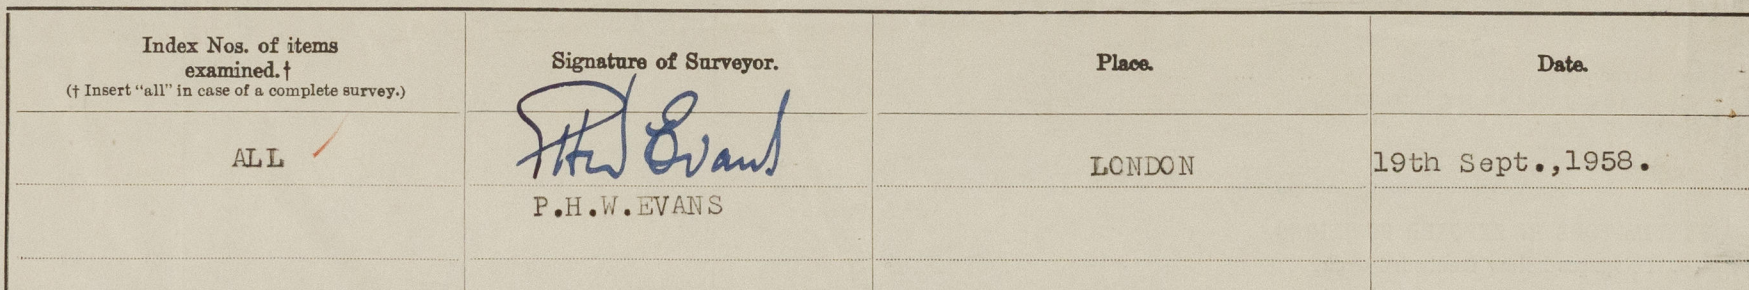 Index Nos. of items
examined.†
(† Insert "all" in case of a complete survey.)
Signature of Surveyor.
Place.
Date.
ALL
PHW Evans
LONDON
19th Sept.,1958.
P.H.W.EVANS